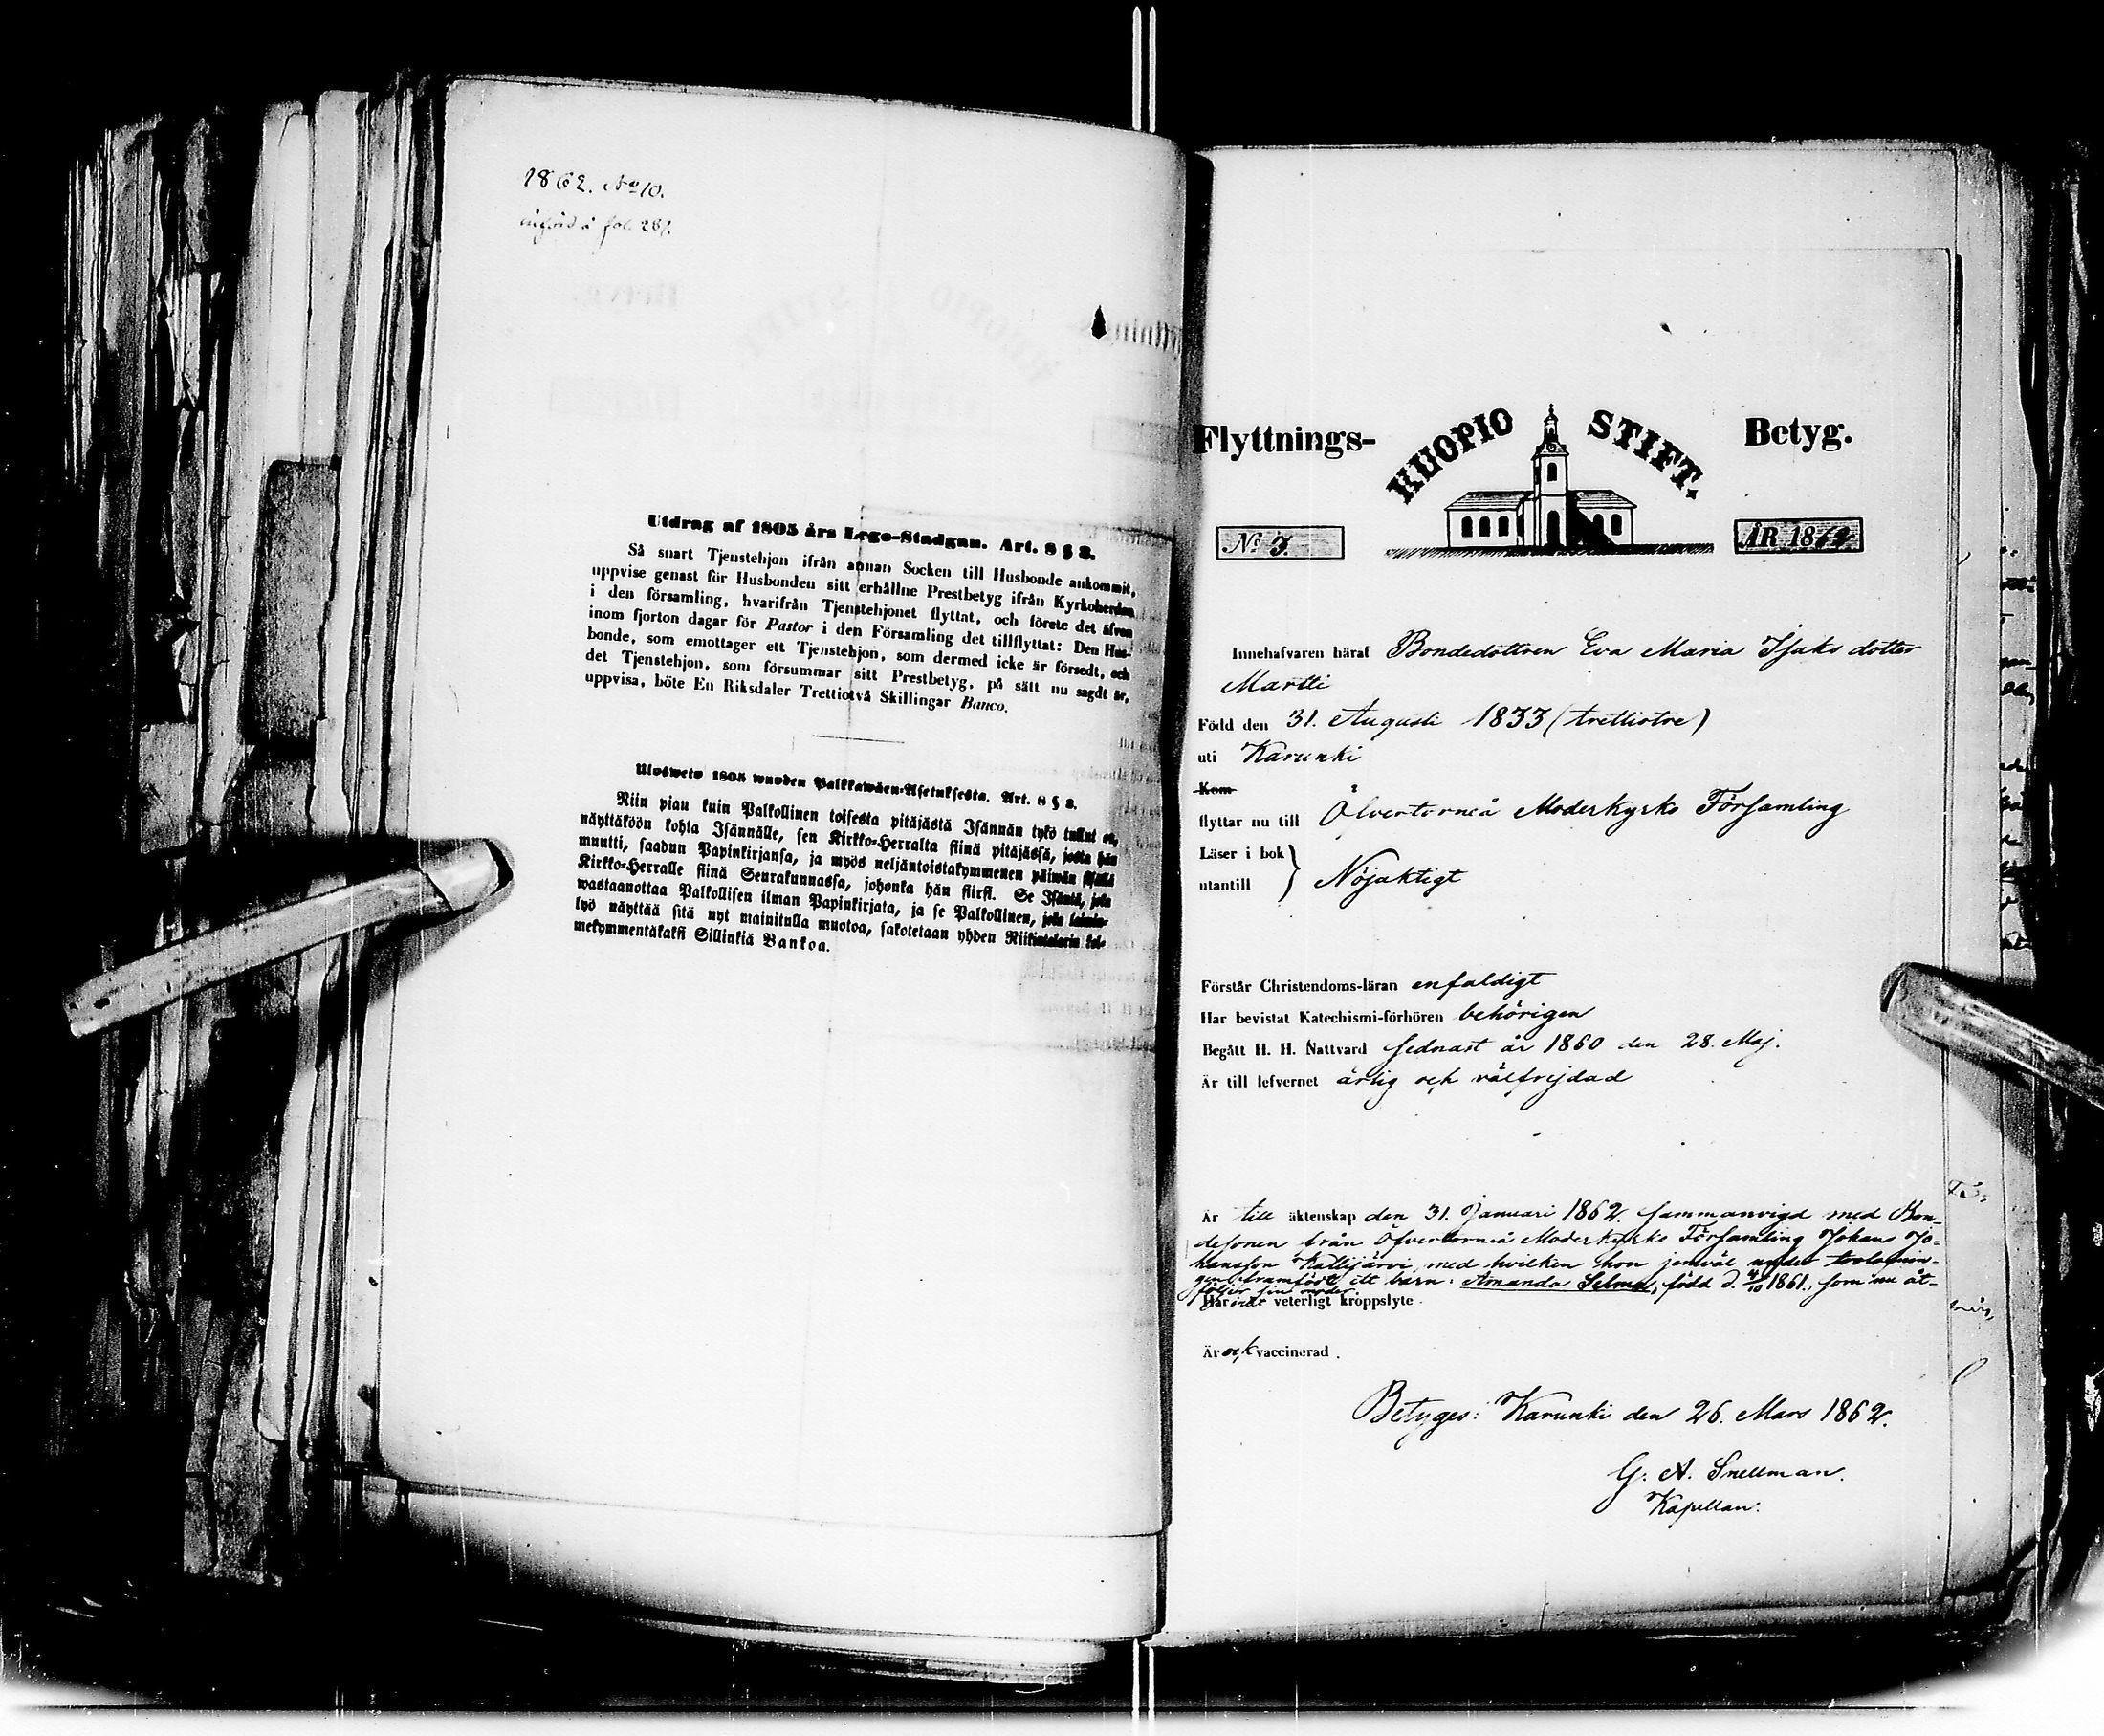 1862. No 10.
införd å fol. 281.
Utdrag af 1805 års Lego-Stadgan. Art. 8 § 2.
Så snart Tjenstehjon ifrån annan Socken till Husbonde ankommit,
uppvise genast för Husbonden sitt erhållne Prestbetyg ifrån Kyrkoherden
i den församling, hvarifrån Tjenstehjonet flyttat, och förete det äfven
inom fjorton dagar för Pastor i den Församling det tillflyttat: Den Hus-
bonde, som emottager ett Tjenstehjon, som dermed icke är försedt, och
det Tjenstehjon, som försummar sitt Prestbetyg, på sätt nu sagdt är,
uppvisa, böte En Riksdaler Trettiotvå Skillingar Banco.
Ulosweto 1805 wuoden Palkkawäen-Asetuksesta. Art. 8 § 2.
Niin pian kuin Palkollinen toisesta pitäjästä Isännän tykö tullut on,
näyttäköön kohta Isännälle, sen Kirkko-Herralta siinä pitäjässä, josta hän
muutti, saadun Papinkirjansa, ja myös neljäntoistakymmenen päiwän sisällä
Kirkko-Herralle siinä Seurakunnassa, johonka hän siirsi. Se Isäntä, jota
wastaanottaa Palkollisen ilman Papinkirjata, ja se Palkollinen, jota laimin-
lyö näyttää sitä nyt mainitulla muotoa, sakotetaan yhden Riikintalarin kol-
mekymmentäkaksi Sillinkiä Bankoa.
Flyttnings- KUOPIO STIFT. Betyg.
No 3. ÅR 1862
Innehafvaren häraf Bondedottren Eva Maria Isaks dotter
Martti
Född den 31. Augusti 1833 (trettiotre)
uti Karunki
Kom
flyttar nu till Öfvertorneå Moderkyrko Församling
Läser i bok
utantill } Nöjaktigt
Förstår Christendoms-läran enfaldigt
Har bevistat Katechismi-förhören behörigen
Begått H. H. Nattvard sednast år 1860 den 28. Maj.
Är till lefvernet ärlig och välfrejdad
Är till äktenskap den 31. Januari 1862. sammanvigd med Bon-
desonen från Öfvertorneå Moderkyrko Församling Johan Jo-
hansson Kallijärvi, med hvilken hon jemväl under trolofnin-
gen framfödt ett barn: Amanda Selma, född d. 4/10 1861., som nu åt-
följer sin moder
Har intet veterligt kroppslyte.
Är och vaccinerad.
Betyges: Karunki den 26. Mars 1862.
G. A. Snellman.
Kapellan.